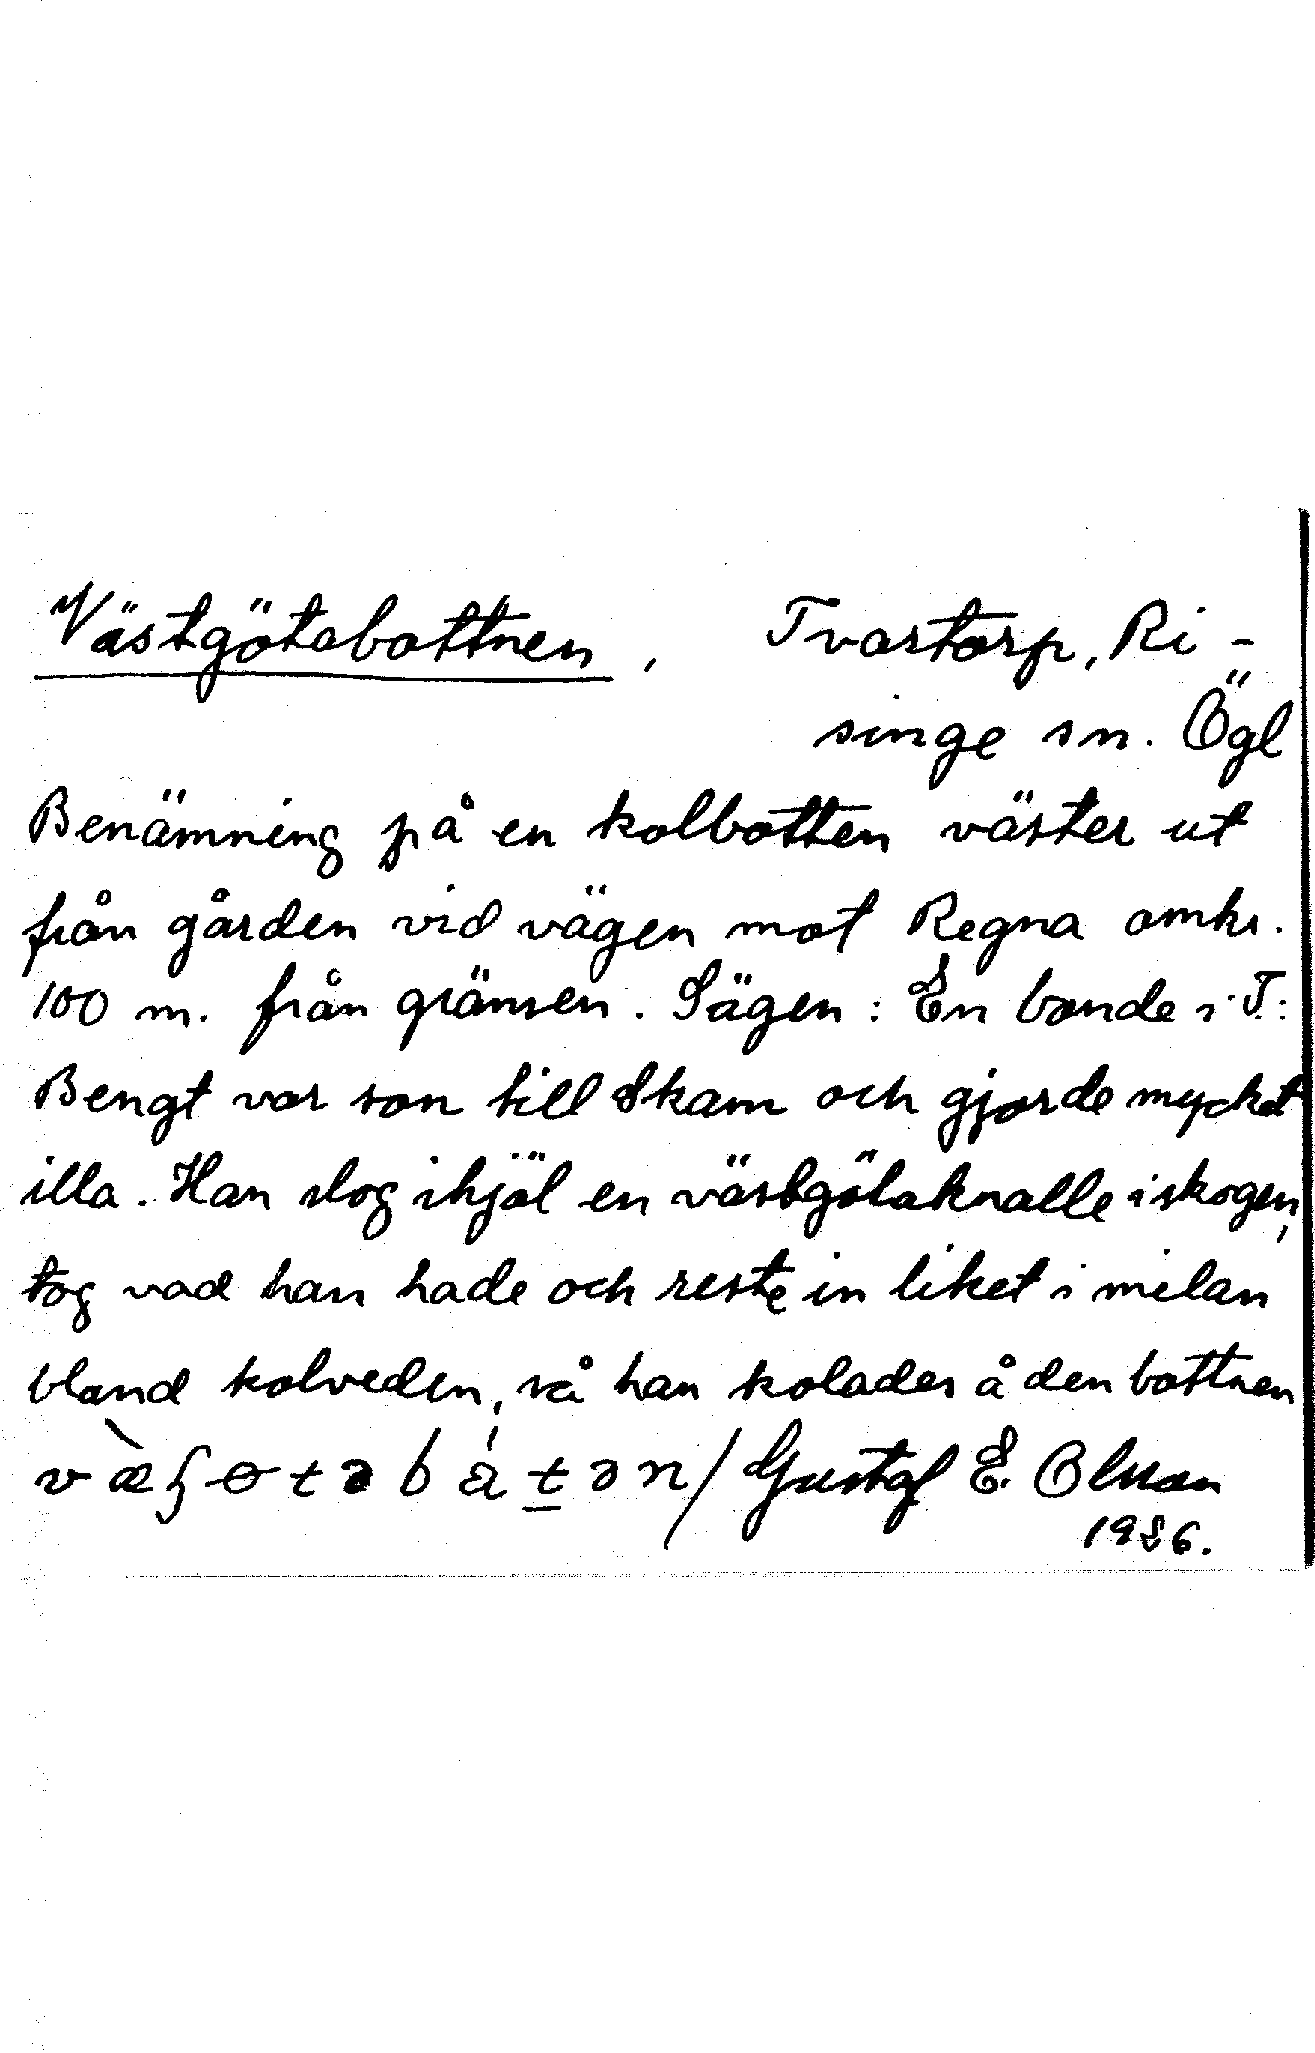 Västgötabottnen, Tvartorp, Ri-
singe sn. Ögl
Benämning på en kolbotten väster ut
från gården vid vägen mot Regna omkr.
100 m. från gränsen. Sägen: En bonde i T:
Bengt var son till Skam och gjorde mycket
illa. Han slog ihjäl en västgötaknalle i skogen,
tog vad han hade och reste in liket i milan
bland kolveden, så han kolades å den bottnen
/ Gustaf E. Olsson